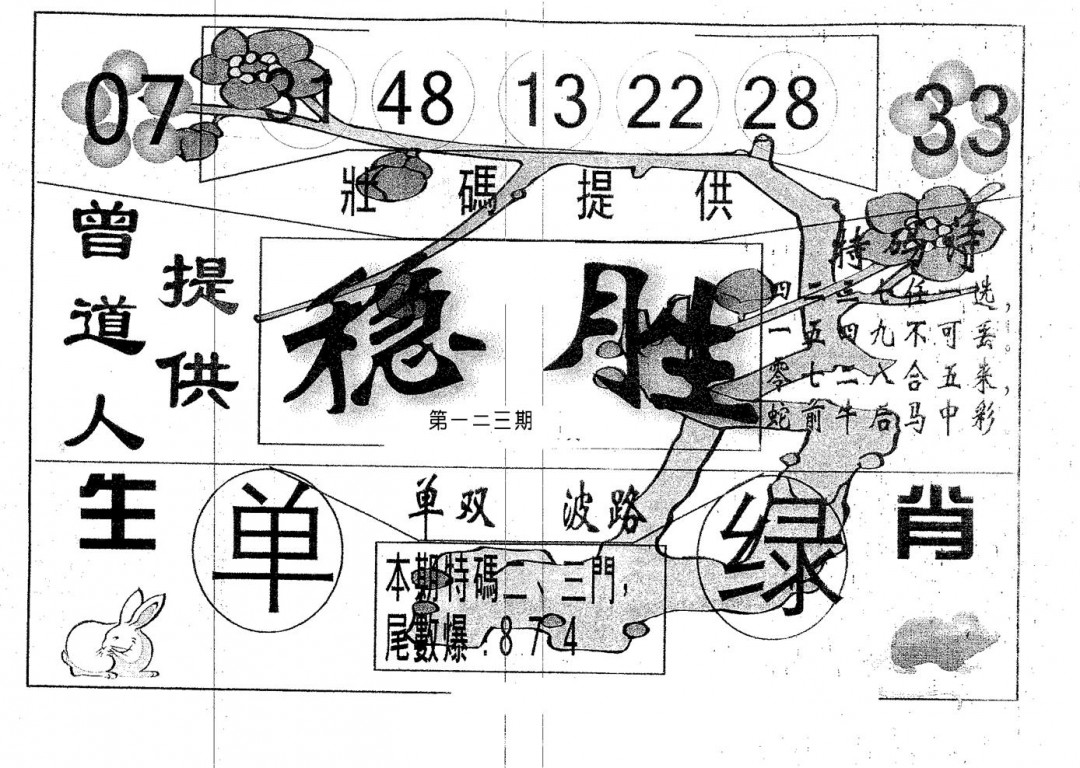 07 31 48 13 22 28 33
壯碼提供
曾道人
提供
稳胜
第一二三期
特碼诗
四二三七任一选，
一五四九不可丢。
零七二八合五来，
蛇前牛后马中彩
生肖
单
单双 波路
绿
本期特碼二、三門，
尾數爆：8 7 4